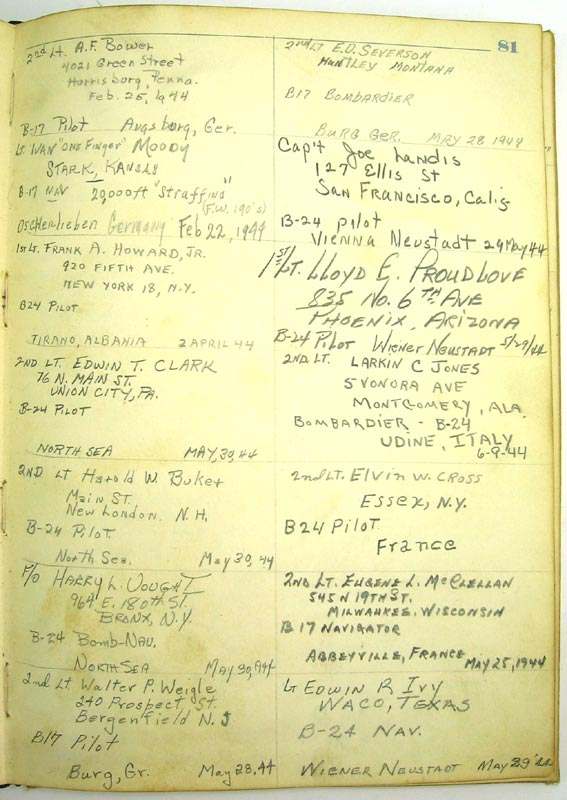 2nd Lt. A.F. Bower
4021 Green Street
Harrisburg, Penna.
Feb. 25, 1944
B-17 Pilot Augsburg, Ger.
Lt WAN "ONE Finger" Moody
STARK, KANSAS
B-17 NAV 20,000ft "Straffing"
(F.W. 190's)
Oscherlieben Germany Feb 22, 1944
1st Lt. FRANK A. HOWARD, JR.
920 FIFTH AVE.
NEW YORK 18, N.Y.
B24 PILOT
TIRANO, ALBANIA 2 APRIL 44
2ND LT. EDWIN T. CLARK
76 N. MAIN ST.
UNION CITY, PA.
B-24 PILOT
NORTH SEA MAY, 30, 44
2ND Lt Harold W. Buker
Main St.
New London. N.H.
B-24 Pilot
North Sea. May 30, 44
F/O HARRY L. VOUGHT
964 E. 180th ST.
BRONX, N.Y.
B-24 Bomb-Nav.
NORTH SEA May 30, 44
2nd Lt. Walter P. Weigle
240 Prospect St.
Bergenfield N.J
B17 Pilot
Burg, Gr. May 28, 44
81
2nd LT E.D. SEVERSON
HUNTLEY MONTANA
B17 BOMBARDIER
BURG GER. MAY 28 1944
Cap't Joe Landis
127 Ellis St
San Francisco, Calif
B-24 pilot
Vienna Neustadt 29 May 44
1st Lt. LLOYD E. PROUDLOVE
835 No. 6TH AVE
PHOENIX, ARIZONA
B-24 Pilot Wiener Neustadt 5/29/44
2ND LT. LARKIN C JONES
5 VONORA AVE
MONTGOMERY, ALA.
BOMBARDIER - B-24
UDINE, ITALY
6-9-44
2nd LT. ELVIN W. CROSS
ESSEX, N.Y.
B24 Pilot
France
2ND LT. EUGENE L. McCLELLAN
545 N 19TH ST.
MILWAUKEE, WISCONSIN
B 17 NAVIGATOR
ABBEYVILLE, FRANCE MAY 25, 1944
LT EDWIN R IVY
WACO, TEXAS
B-24 NAV.
WIENER NEUSTADT MAY 29 '44